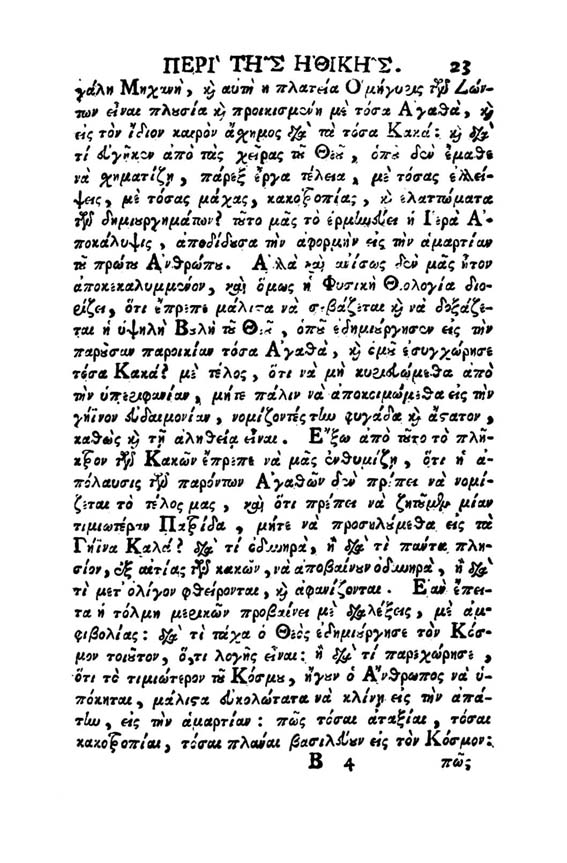 ΠΕΡΙ' ΤΗ͂Σ ΗΘΙΚΗ͂Σ. 23
γάλη Μηχανὴ, ϗ αὐτὴ ἡ πλατεία Ὁμήγυρις τῶν Ζών-
των εἶναι πλουσία ϗ προικισμένη μὲ τόσα Ἀγαθὰ, ϗ
εἰς τὸν ἴδιον καιρὸν ἄχημος διὰ τὰ τόσα Κακά: ϗ διὰ
τί εὐγῆκεν ἀπὸ τὰς χεῖρας τοῦ Θεοῦ, ὁποῦ δὲν ἔμαθε
νὰ χηματίζῃ, πάρεξ ἔργα τέλεια, μὲ τόσας ἐλλεί-
ψεις, μὲ τόσας μάχας, κακοτροπίας, ϗ ἐλαττώματα
τῶν δημιουργημάτων? τοῦτο μᾶς τὸ ἑρμηνεύει ἡ Ἱερὰ Ἀ-
ποκάλυψις, ἀποδίδουσα τὴν ἀφορμὴν εἰς τὴν ἁμαρτίαν
τοῦ πρώτου Ἀνθρώπου. Ἀλλὰ καὶ ἀνίσως δὲν μᾶς ἦτον
ἀποκεκαλυμμένον, καὶ ὅμως ἡ Φυσικὴ Θεολογία διο-
ρίζει, ὅτι ἔπρεπε μάλιστα νὰ σεβάζεται ϗ νὰ δοξάζε-
ται ἡ ὑψηλὴ Βουλὴ τοῦ Θεοῦ, ὁποῦ ἐδημιούργησεν εἰς τὴν
παροῦσαν παροικίαν τόσα Ἀγαθὰ, ϗ ὁμοῦ ἐσυγχώρησε
τόσα Κακά? μὲ τέλος, ὅτι νὰ μὴ κυριευώμεθα ἀπὸ
τὴν ὑπερηφανίαν, μήτε πάλιν νὰ ἀποκοιμώμεθα εἰς τὴν
γήϊνον εὐδαιμονίαν, νομίζοντές την φυγάδα ϗ ἄστατον,
καθὼς ϗ τῇ ἀληθείᾳ εἶναι. Ἔξω ἀπὸ τοῦτο τὸ πλῆ-
κτρον τῶν Κακῶν ἔπρεπε νὰ μᾶς ἐνθυμίζῃ, ὅτι ἡ ἀ-
πόλαυσις τῶν παρόντων Ἀγαθῶν δὲν πρέπει νὰ νομί-
ζεται τὸ τέλος μας, καὶ ὅτι πρέπει νὰ ζητοῦμεν μίαν
τιμιωτέραν Πατρίδα, μήτε νὰ προσηλούμεθα εἰς τὰ
Γήϊνα Καλά? διὰ τί ὀδυνηρὰ, ἢ διὰ τὶ πάντα πλη-
σίον, ἐξ αἰτίας τῶν κακῶν, νὰ ἀποβαίνουν ὀδυνηρὰ, ἢ διὰ
τὶ μετ' ὀλίγον φθείρονται, ϗ ἀφανίζονται. Ἐὰν ἔπει-
τα ἡ τόλμη μερικῶν προβαίνει μὲ διαλέξεις, μὲ ἀμ-
φιβολίας: διὰ τὶ τάχα ὁ Θεὸς ἐδημιούργησε τὸν Κόσ-
μον τοιοῦτον, ὅ,τι λογῆς εἶναι: ἢ διὰ τί παρεχώρησε,
ὅτι τὸ τιμιώτερον τοῦ Κόσμου, ἤγουν ὁ Ἄνθρωπος νὰ ὑ-
πόκηται, μάλιστα εὐκολώτατα νὰ κλίνῃ εἰς τὴν ἀπά-
την, εἰς τὴν ἁμαρτίαν: πῶς τόσαι ἀταξίαι, τόσαι
κακοτροπίαι, τόσαι πλάναι βασιλεύουν εἰς τὸν Κόσμον:
Β 4 πῶς